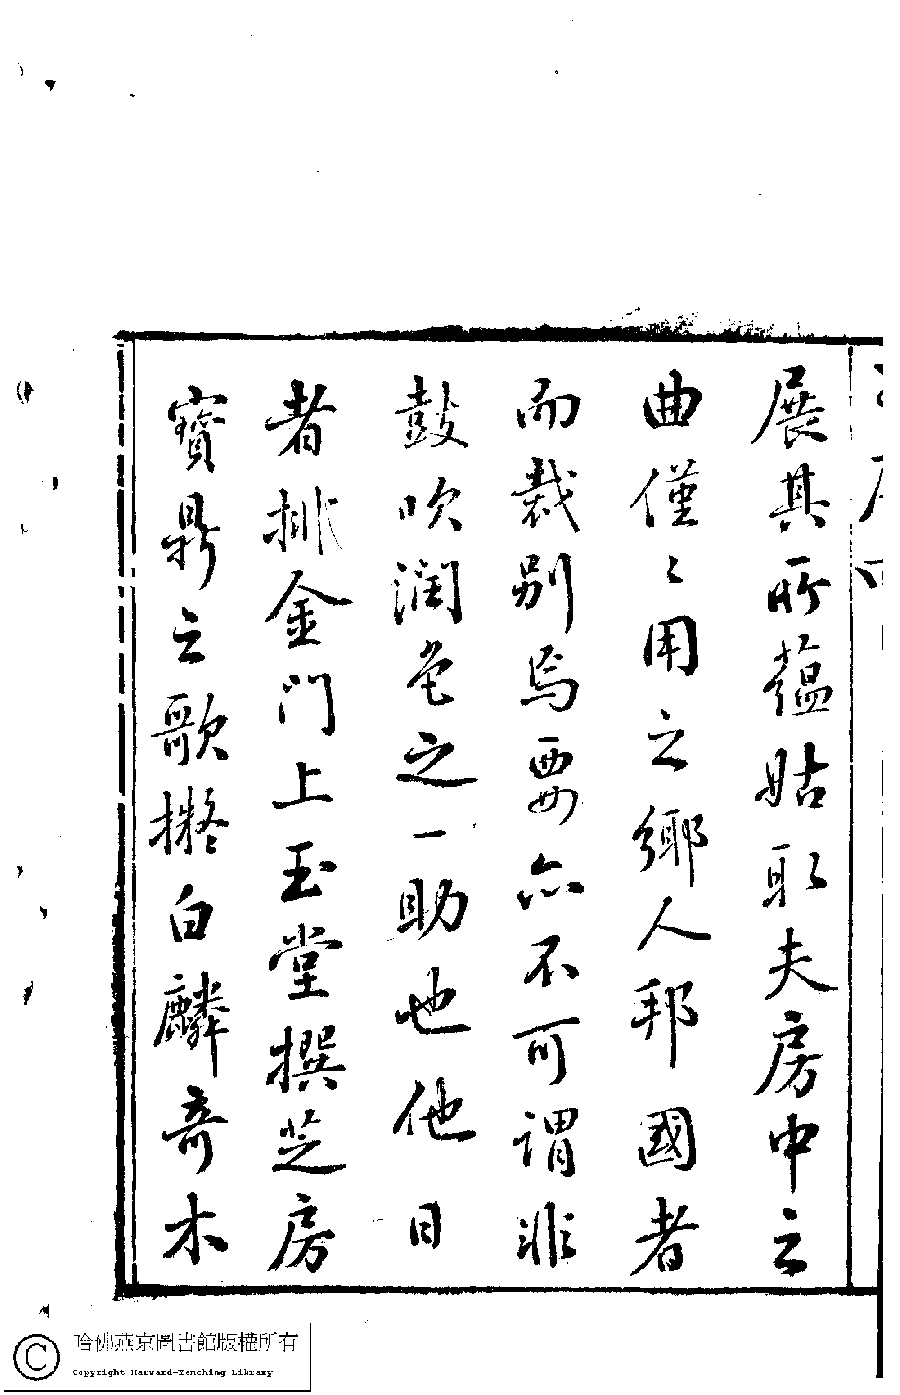 展其所蘊姑取夫房中之
曲僅〻用之鄉人邦國者
而裁別焉要亦不可謂非
鼓吹潤色之一助也他日
者排金門上玉堂撰芝房
寶鼎之歌擬白麟奇木
哈佛燕京圖書館版權所有
Copyright Harvard-Yenching Library